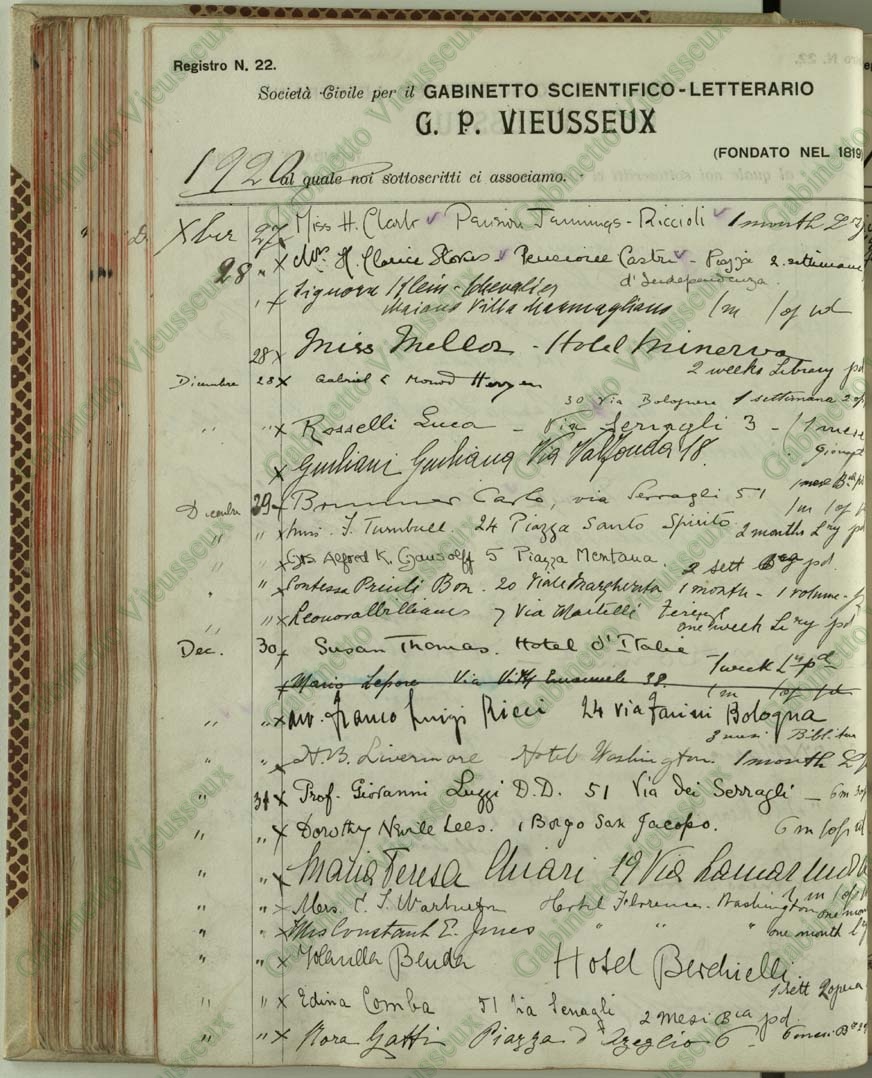 Registro N. 22.
Società Civile per il GABINETTO SCIENTIFICO-LETTERARIO
G. P. VIEUSSEUX
(FONDATO NEL 1819)
1920 al quale noi sottoscritti ci associamo.
Xber 27 Miss H. Clark Pension Jennings-Riccioli 1 month
28 " x H. Clarice Stokes Pensione Castri - Piazza 2 settimane
d'Independenza
" x Signora Klein-Chevalier
Maiano Villa 1 m 1 of vol
28 x Miss Mellor - Hotel Minerva
2 weeks Library pd
Dicembre 28 x Gabriel & Monod Herzen
30 Via Bolognese 1 settimana 2 op
" " x Rosselli Luca - Via Serragli 3 - (1 mese
x Giuliani Giuliana Via Valfonda 18.
1 mese
Dicembre 29 Carlo, via Serragli 51
1 m 1 of
" " x Miss. J. Turnbull. 24 Piazza Santo Spirito 2 months Lry pd
" " x Alfred K. 5 Piazza Mentana. 2 sett pd.
" " x Contessa Priuli Bon. 20 Viale Margherita 1 month - 1 volume -
" " x Leonora Williams 7 Via Martelli Firenze
one week Lry pd
Dec. 30 x Susan Thomas. Hotel d'Italie
1 week Ly pd
x Mario Lepore Via Vitt. Emanuele 38.
1 m 1 of pd
" " x avv. Franco Luigi Ricci 24 via Farini Bologna
3 mesi
" " x H.B. Livermore Hotel Washington. 1 month
" 31 x Prof. Giovanni Luzzi D.D. 51 Via dei Serragli - 6 m
" " x Dorothy Nevile Lees. 1 Borgo San Jacopo. 6 m 1 of vd
" " x Maria Teresa Chiari 19 Via Lamarmora
1 m 1 of
" " x Mrs. C. S. Warburton Hotel Florence-Washington one mon
" " x Mrs Constant E. Jones " " " one month
" " x Yolanda Benda Hotel Berchielli
1 sett 2 opere
" " x Edina Comba 51 Via Serragli
2 mesi Bca pd.
" " x Nora Gatti Piazza d'Azeglio 6 6 mesi